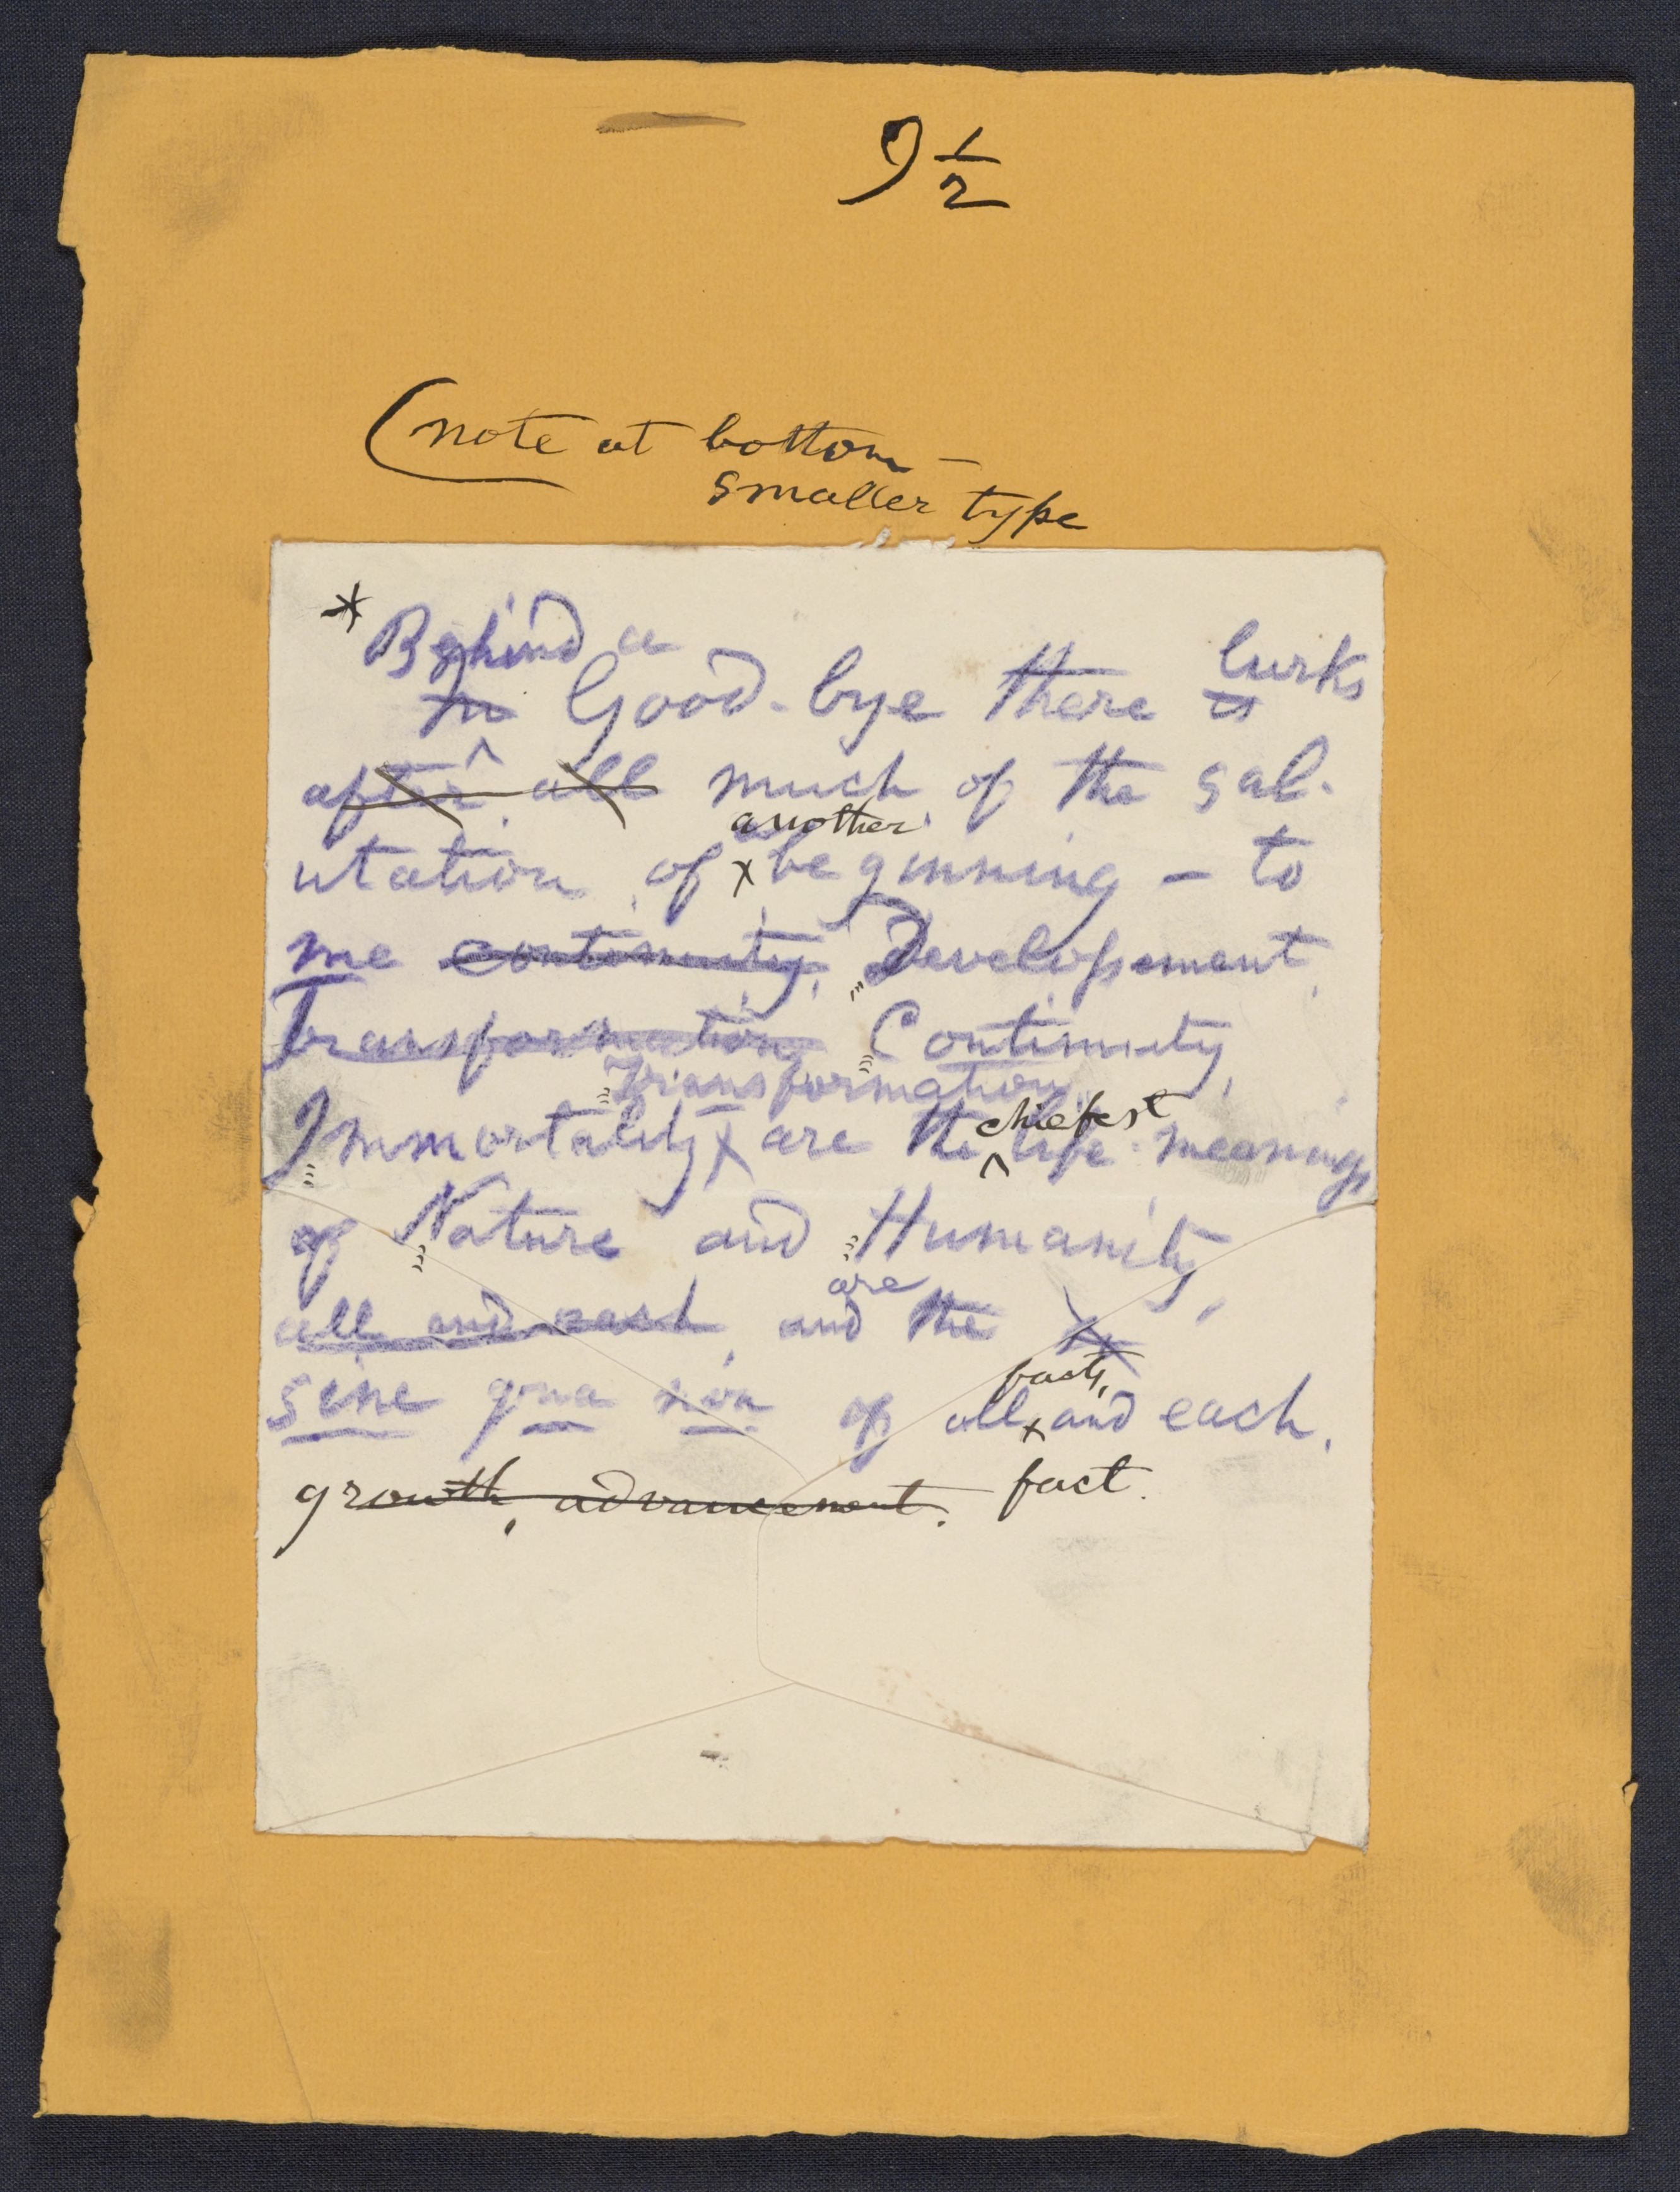 9 1/2
(note at bottom –
smaller type
* Behind a lurks
In Good-bye there is
after all much of the sal-
another
utation of beginning – to
me continuity, Developement,
Transformation Continuity,
Transformation,
chiefest
Immortality, are the life-meanings
of Nature and Humanity,
are
all and each, and the
facts,
sine qua non of all and each,
growth, advancement. fact.